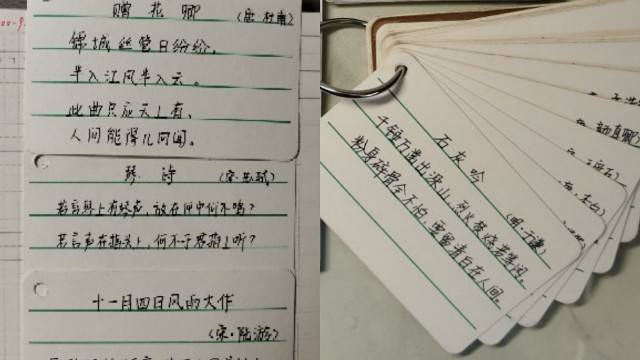 赠花卿
(唐·杜甫)
锦城丝管日纷纷，
半入江风半入云。
此曲只应天上有，
人间能得几回闻。
琴诗
(宋·苏轼)
若言琴上有琴声，放在匣中何不鸣？
若言声在指头上，何不于君指上听？
十一月四日风雨大作
(宋·陆游)
石灰吟
(明·于谦)
千锤万凿出深山，烈火焚烧若等闲。
粉身碎骨全不怕，要留清白在人间。